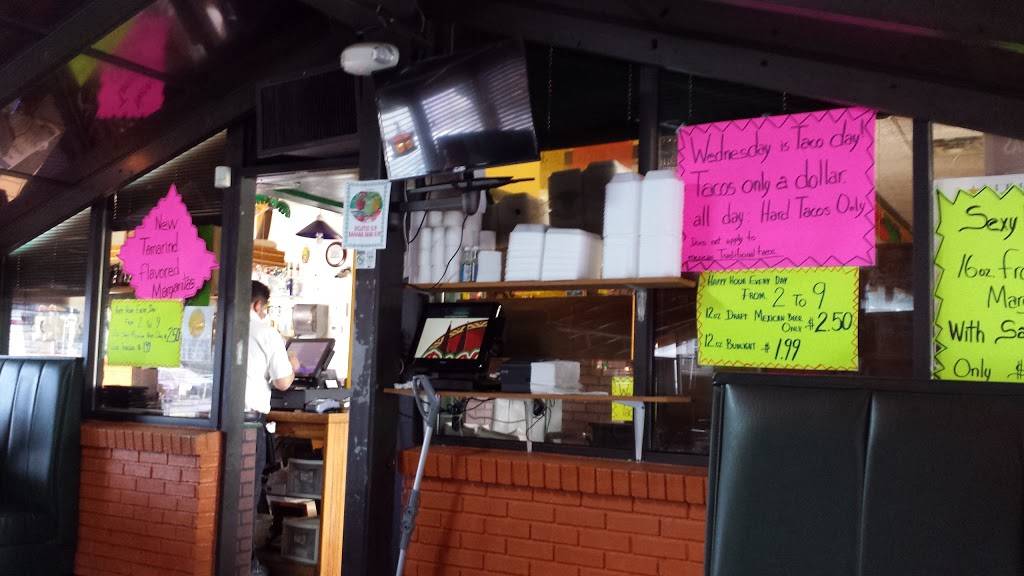 New
Tamarind
Flavored
Margaritas
Happy Hour Every Day
From 2 to 9
2.50
1.99
Wednesday is Taco day!
Tacos only a dollar.
all day: Hard Tacos Only
Does not apply to
mexican Traditional tacos.
Happy Hour Every Day
From 2 to 9
12oz Draft Mexican Beer
Only $2.50
12 oz Budlight $1.99
Sexy
16oz. Fro
Mar
With Sa
Only $